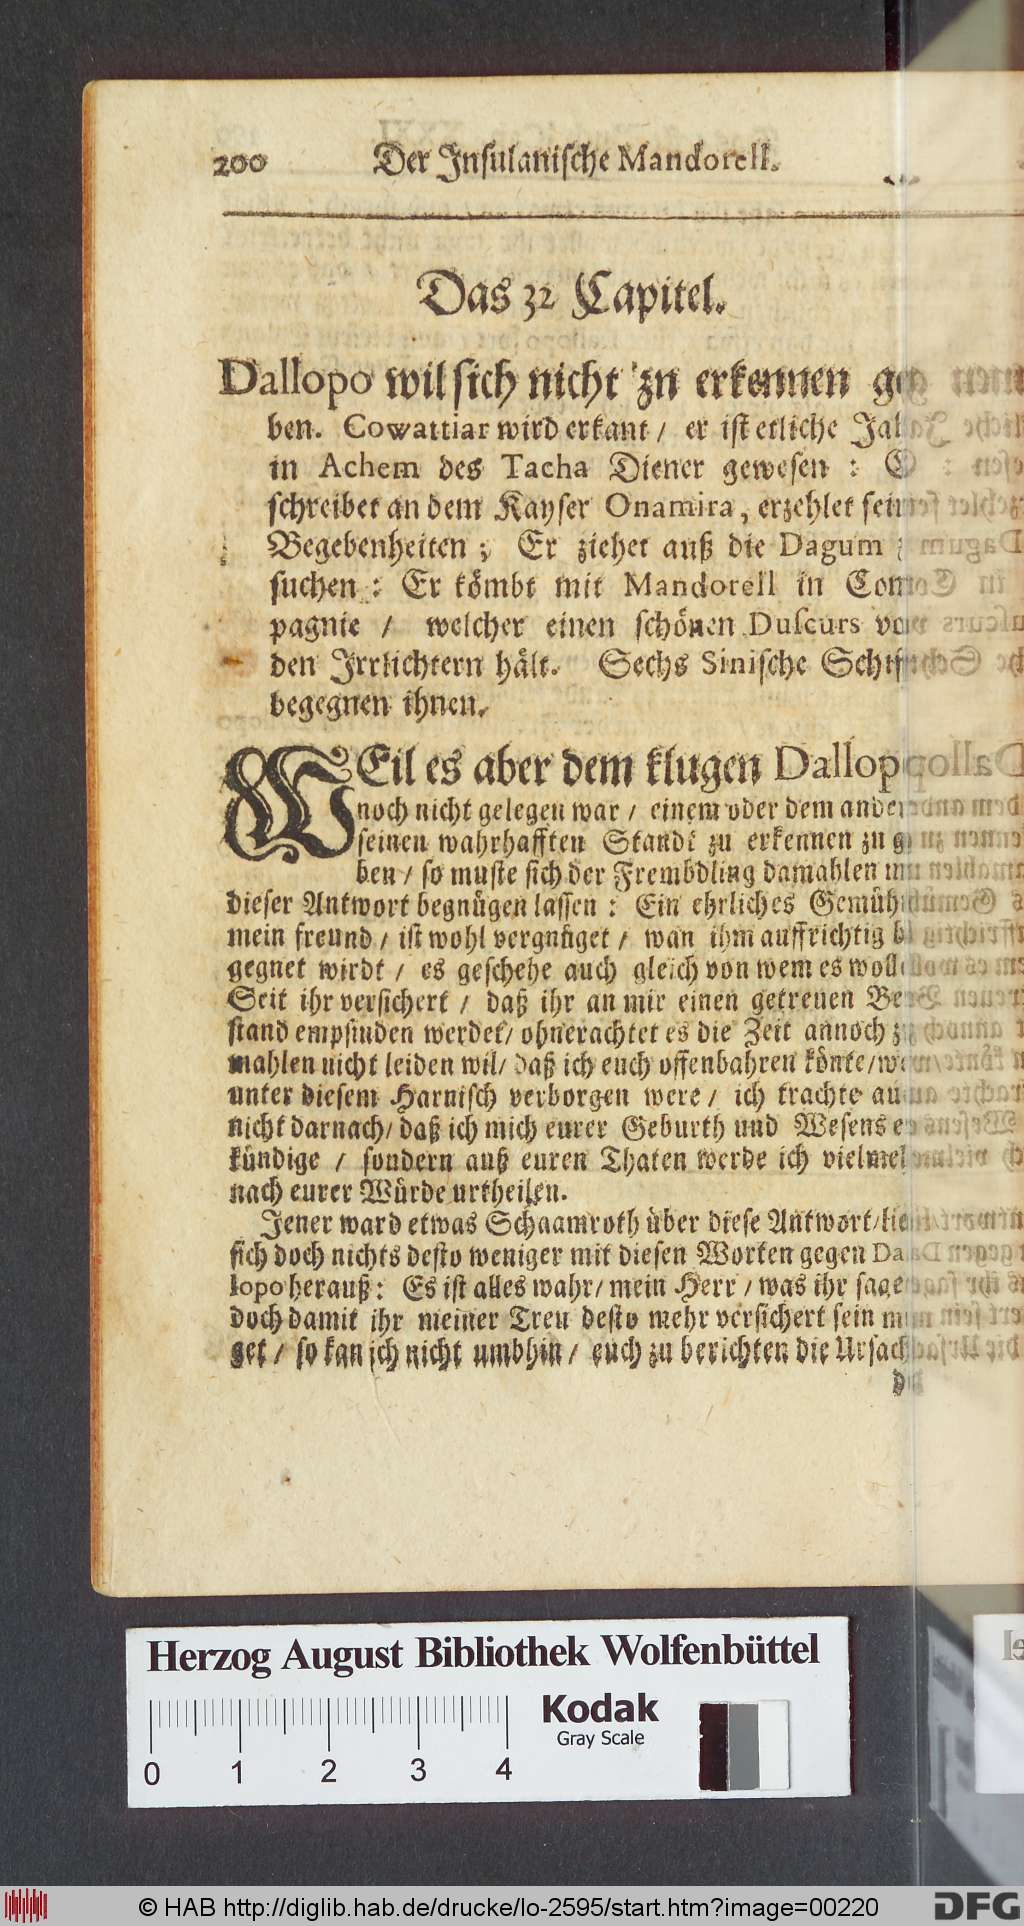 200 Der Insulanische Mandorell.
Das 32 Capitel.
Dallopo wil sich nicht zu erkennen ge
ben. Cowattiar wird erkant / er ist etliche Jah
in Achem des Tacha Diener gewesen : E
schreibet an dem Kayser Onamira, erzehlet sein
Begebenheiten ; Er ziehet auß die Dagum z
suchen : Er kömbt mit Mandorell in Com
pagnie / welcher einen schönen Duscurs vo
den Irrlichtern hält. Sechs Sinische Schif
begegnen ihnen.
WEil es aber dem klugen Dallop
noch nicht gelegen war / einem oder dem ander
seinen wahrhafften Standt zu erkennen zu g
ben / so muste sich der Frembdling damahlen m
dieser Antwort begnügen lassen : Ein ehrliches Gemüh
mein freund / ist wohl vergnüget / wan ihm auffrichtig b
gegnet wirdt / es geschehe auch gleich von wem es woll
Seit ihr versichert / daß ihr an mir einen getreuen Be
stand empfinden werdet / ohnerachtet es die Zeit annoch z
mahlen nicht leiden wil / daß ich euch offenbahren könte / we
unter diesem Harnisch verborgen were / ich trachte au
nicht darnach / daß ich mich eurer Geburth und Wesens e
kündige / sondern auß euren Thaten werde ich vielmeh
nach eurer Würde urtheilen.
Jener ward etwas Schaamroth über diese Antwort / lie
sich doch nichts desto weniger mit diesen Worten gegen Da
lopo herauß : Es ist alles wahr / mein Herr / was ihr sage
doch damit ihr meiner Treu desto mehr versichert sein m
get / so kan ich nicht umbhin / euch zu berichten die Ursach
d
Herzog August Bibliothek Wolfenbüttel
Kodak
Gray Scale
0 1 2 3 4
© HAB http://diglib.hab.de/drucke/lo-2595/start.htm?image=00220
DFG